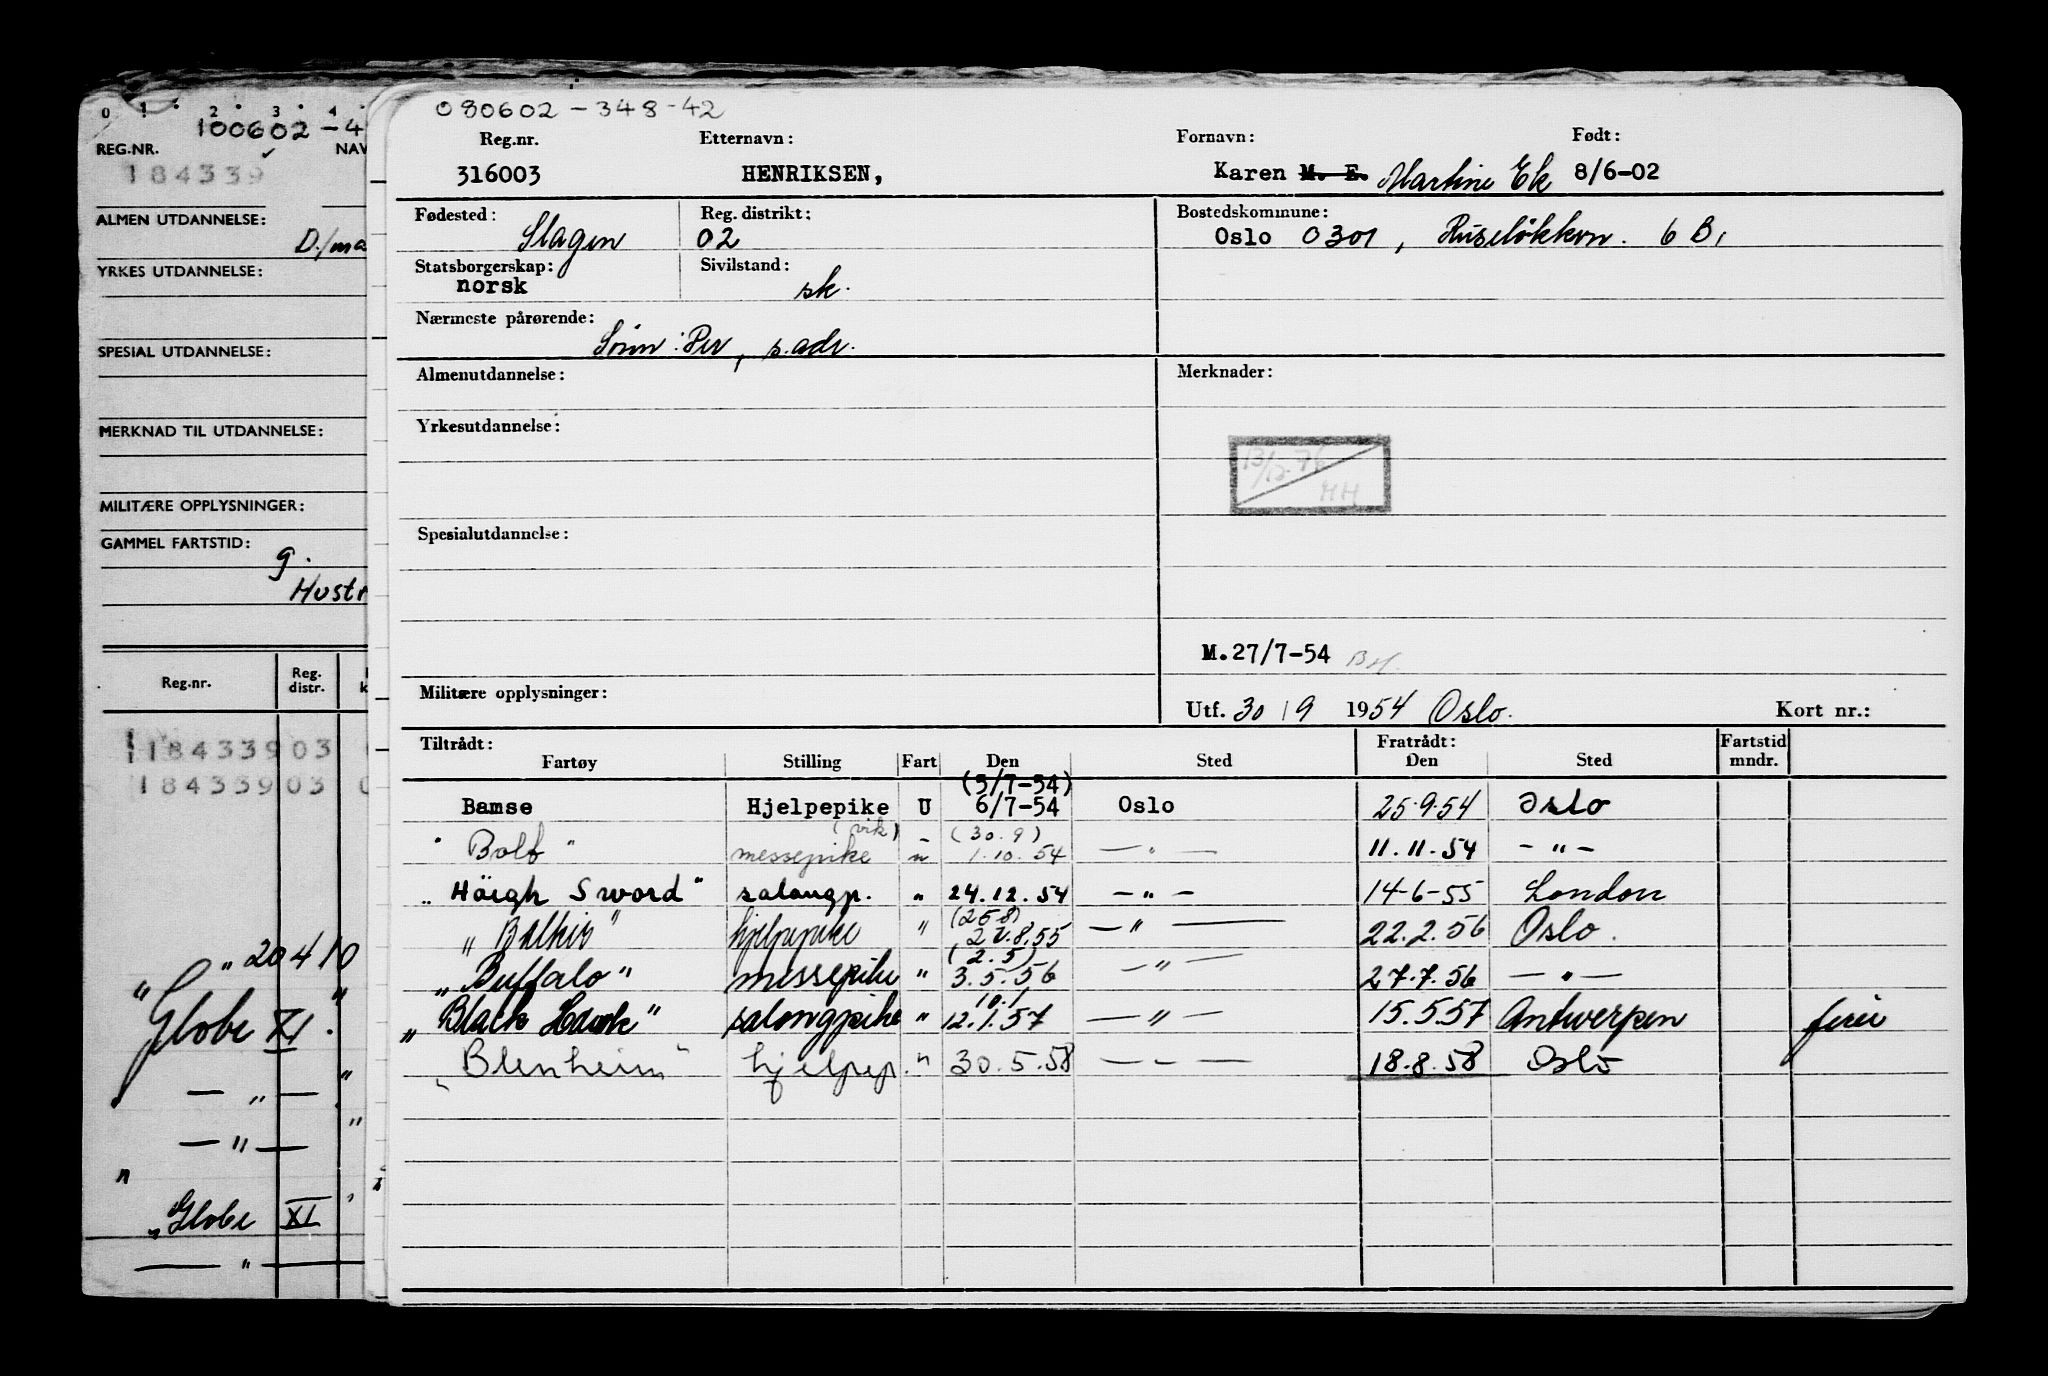 0 1 2 3 4
100602-4
REG.NR. NAV
184339
ALMEN UTDANNELSE:
D./ma
YRKES UTDANNELSE:
SPESIAL UTDANNELSE:
MERKNAD TIL UTDANNELSE:
MILITÆRE OPPLYSNINGER:
GAMMEL FARTSTID:
g.
Hustr
Reg.nr. Reg. distr.
184339 03
184339 03
" 20 4 10
"Globe XI."
— " —
— " —
"Globe XI
— " —
080602-348-42
Reg.nr. Etternavn: Fornavn: Født:
316003 HENRIKSEN, Karen M. E. Martine Ek 8/6-02
Fødested: Reg. distrikt: Bostedskommune:
Slagen 02 Oslo 0301, Ruseløkkvn. 6 B,
Statsborgerskap: Sivilstand:
norsk sk.
Nærmeste pårørende:
Sønn: Per, s. adr.
Almenutdannelse: Merknader:
Yrkesutdannelse:
13/12-76
HH
Spesialutdannelse:
M.27/7-54
Militære opplysninger:
Utf. 30/9 1954 Oslo. Kort nr.:
Tiltrådt: Fratrådt: Fartstid
Fartøy Stilling Fart Den Sted Den Sted mndr.
(5/7-54)
Bamse Hjelpepike U 6/7-54 Oslo 25.9.54 Oslo
(vik) (30.9)
"Bolt" messepike " 1.10.54 — " — 11.11.54 — " —
"Höigh Sword" salongp. " 24.12.54 — " — 14-6-55 London
(25 8)
"Balkis" hjelpepike " 27.8.55 — " — 22.2.56 Oslo.
(2.5)
"Buffalo" messepike " 3.5.56 — " — 27.7.56 — " —
10.1
"Black Hawk" salongpike " 12.1.57 — " — 15.5.57 Antwerpen ferie
"Blenheim" hjelpep. " 30.5.58 — " — 18.8.58 Oslo